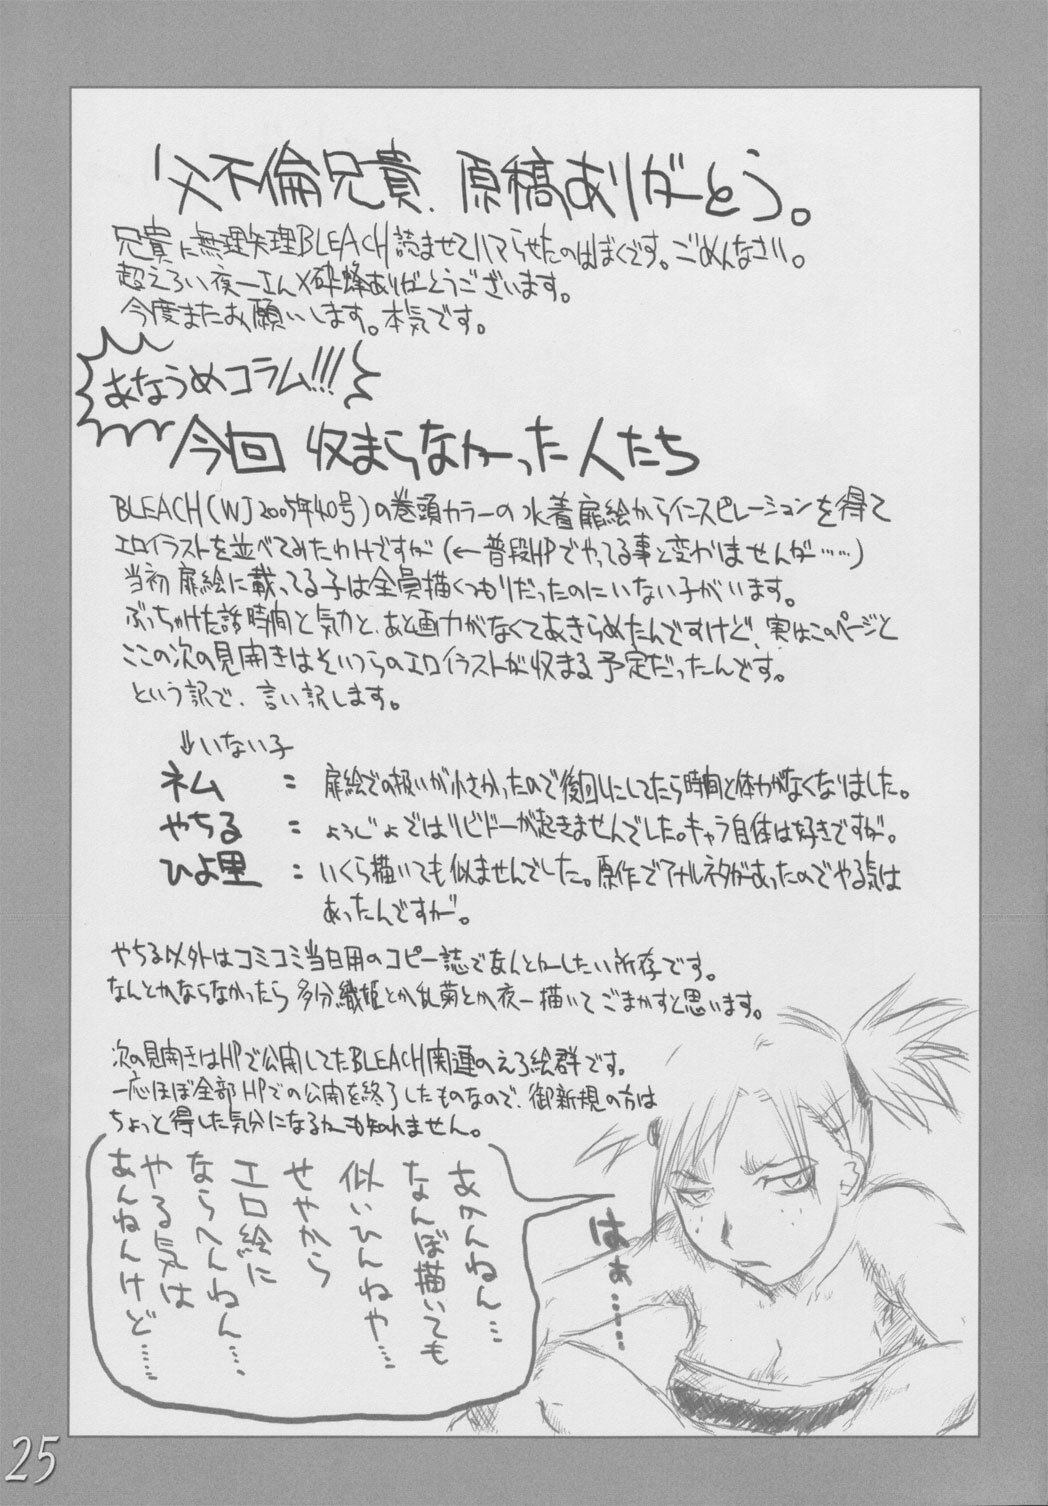 父不倫兄貴、原稿ありがとう。
兄貴に無理矢理BLEACH読ませてハマらせたのはぼくです。ごめんなさい。
超えろい夜一さん×砕蜂ありがとうございます。
今度またお願いします。本気です。
あなうめコラム!!!
今回 収まらなかった人たち
BLEACH(WJ2005年40号)の巻頭カラーの水着扉絵からインスピレーションを得て
エロイラストを並べてみたわけですが(←普段HPでやってる事と変わりませんが……)
当初扉絵に載ってる子は全員描くつもりだったのにいない子がいます。
ぶっちゃけた話時間と気力と、あと画力がなくてあきらめたんですけど、実はこのページと
ここの次の見開きはそいつらのエロイラストが収まる予定だったんです。
という訳で、言い訳します。
↓いない子
ネム : 扉絵での扱いが小さかったので後回しにしてたら時間と体力がなくなりました。
やちる : ようじょではリビドーが起きませんでした。キャラ自体は好きですが。
ひよ里 : いくら描いても似ませんでした。原作でアナルネタがあったのでやる気は
あったんですが。
やちる以外はコミコミ当日用のコピー誌でなんとかしたい所存です。
なんとかならなかったら多分織姫とか乱菊とか夜一描いてごまかすと思います。
次の見開きはHPで公開してたBLEACH関連のえろ絵群です。
一応ほぼ全部HPでの公開を終了したものなので、御新規の方は
ちょっと得した気分になるかも知れません。
あかんねん…
なんぼ描いても
似いひんねや…
せやから
エロ絵に
ならへんねん……
やる気は
あんねんけど……
はぁ……
25